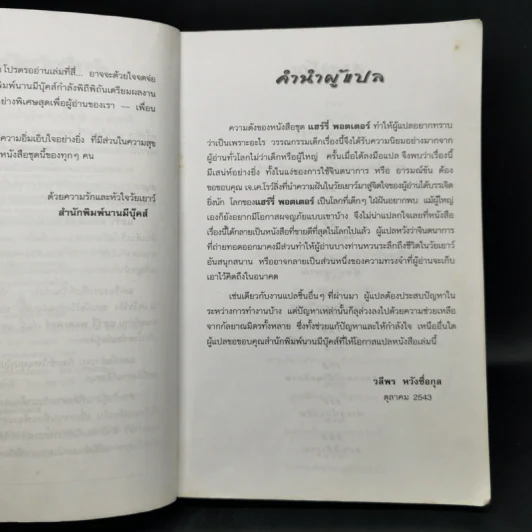 โปรดรออ่านเล่มที่สี่... อาจจะด้วยใจจดจ่อ
พิมพ์นานมีบุ๊คส์กำลังพิถีพิถันเตรียมผลงาน
ย่างพิเศษสุดเพื่อผู้อ่านของเรา — เพื่อน
ความยิ่มเอิบใจอย่างยิ่ง ที่มีส่วนในความสุข
หนังสือชุดนี้ของทุกๆ คน
ด้วยความรักและหัวใจวัยเยาว์
สำนักพิมพ์นานมีบุ๊คส์
คำนำผู้แปล
ความดังของหนังสือชุด แฮร์รี่ พอตเตอร์ ทำให้ผู้แปลอยากทราบ
ว่าเป็นเพราะอะไร วรรณกรรมเด็กเรื่องนี้จึงได้รับความนิยมอย่างมากจาก
ผู้อ่านทั่วโลกไม่ว่าเด็กหรือผู้ใหญ่ ครั้นเมื่อได้ลงมือแปล จึงพบว่าเรื่องนี้
มีเสน่ห์อย่างยิ่ง ทั้งในแง่ของการใช้จินตนาการ หรือ อารมณ์ขัน ต้อง
ขอขอบคุณ เจ.เค.โรว์ลิ่งที่นำความฝันในวัยเยาว์มาสู่จิตใจของผู้อ่านได้บรรเจิด
ยิ่งนัก โลกของแฮร์รี่ พอตเตอร์ เป็นโลกที่เด็กๆ ใฝ่ฝันอยากพบ แม้ผู้ใหญ่
เองก็ยังอยากมีโอกาสผจญภัยแบบเขาบ้าง จึงไม่น่าแปลกใจเลยที่หนังสือ
เรื่องนี้ได้กลายเป็นหนังสือที่ขายดีที่สุดในโลกไปแล้ว ผู้แปลหวังว่าจินตนาการ
ที่ถ่ายทอดออกมาคงมีส่วนทำให้ผู้อ่านบางท่านหวนระลึกถึงชีวิตในวัยเยาว์
อันสนุกสนาน หรืออาจกลายเป็นส่วนหนึ่งของความทรงจำที่ผู้อ่านจะเก็บ
เอาไว้คิดถึงในอนาคต
เช่นเดียวกับงานแปลชิ้นอื่นๆ ที่ผ่านมา ผู้แปลต้องประสบปัญหาใน
ระหว่างการทำงานบ้าง แต่ปัญหาเหล่านั้นก็ลุล่วงลงไปด้วยความช่วยเหลือ
จากกัลยาณมิตรทั้งหลาย ซึ่งทั้งช่วยแก้ปัญหาและให้กำลังใจ เหนืออื่นใด
ผู้แปลขอขอบคุณสำนักพิมพ์นานมีบุ๊คส์ที่ให้โอกาสแปลหนังสือเล่มนี้
วลีพร หวังซื่อกุล
ตุลาคม 2543